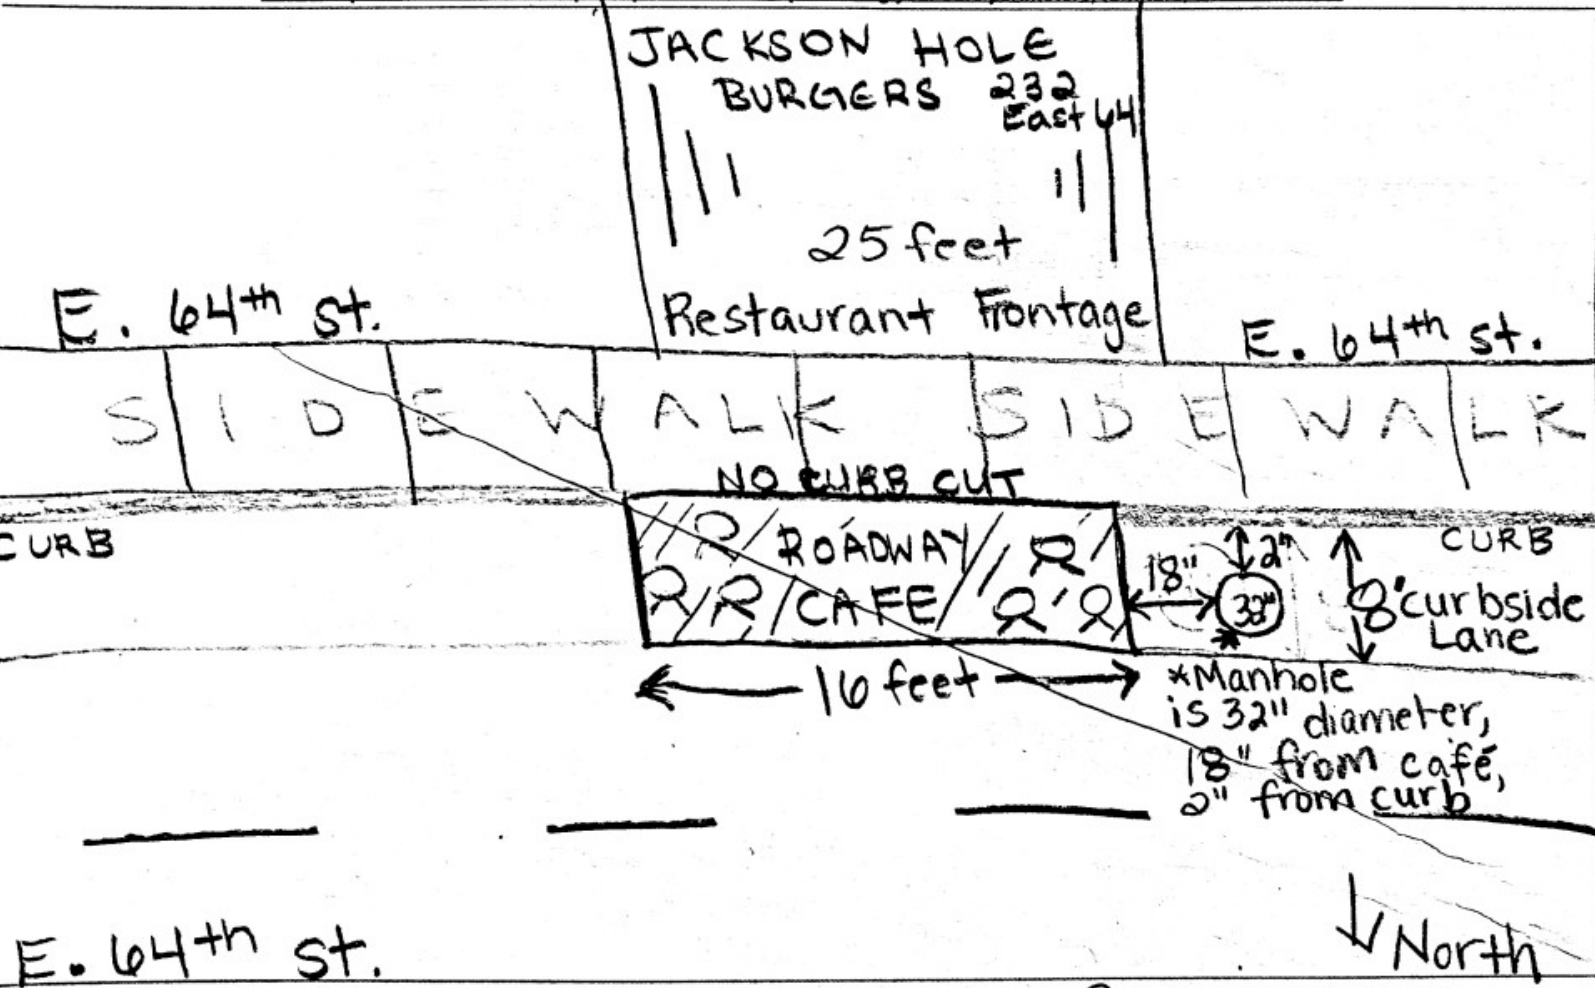 JACKSON HOLE
BURGERS 232
East 64
25 feet
Restaurant Frontage
E. 64th st.
E. 64th st.
SIDEWALK SIDEWALK
NO CURB CUT
CURB
ROADWAY
CAFE
18"
2"
32"
*
CURB
8' curbside
Lane
16 feet
*Manhole
is 32" diameter,
18" from café,
2" from curb
E. 64th st.
North